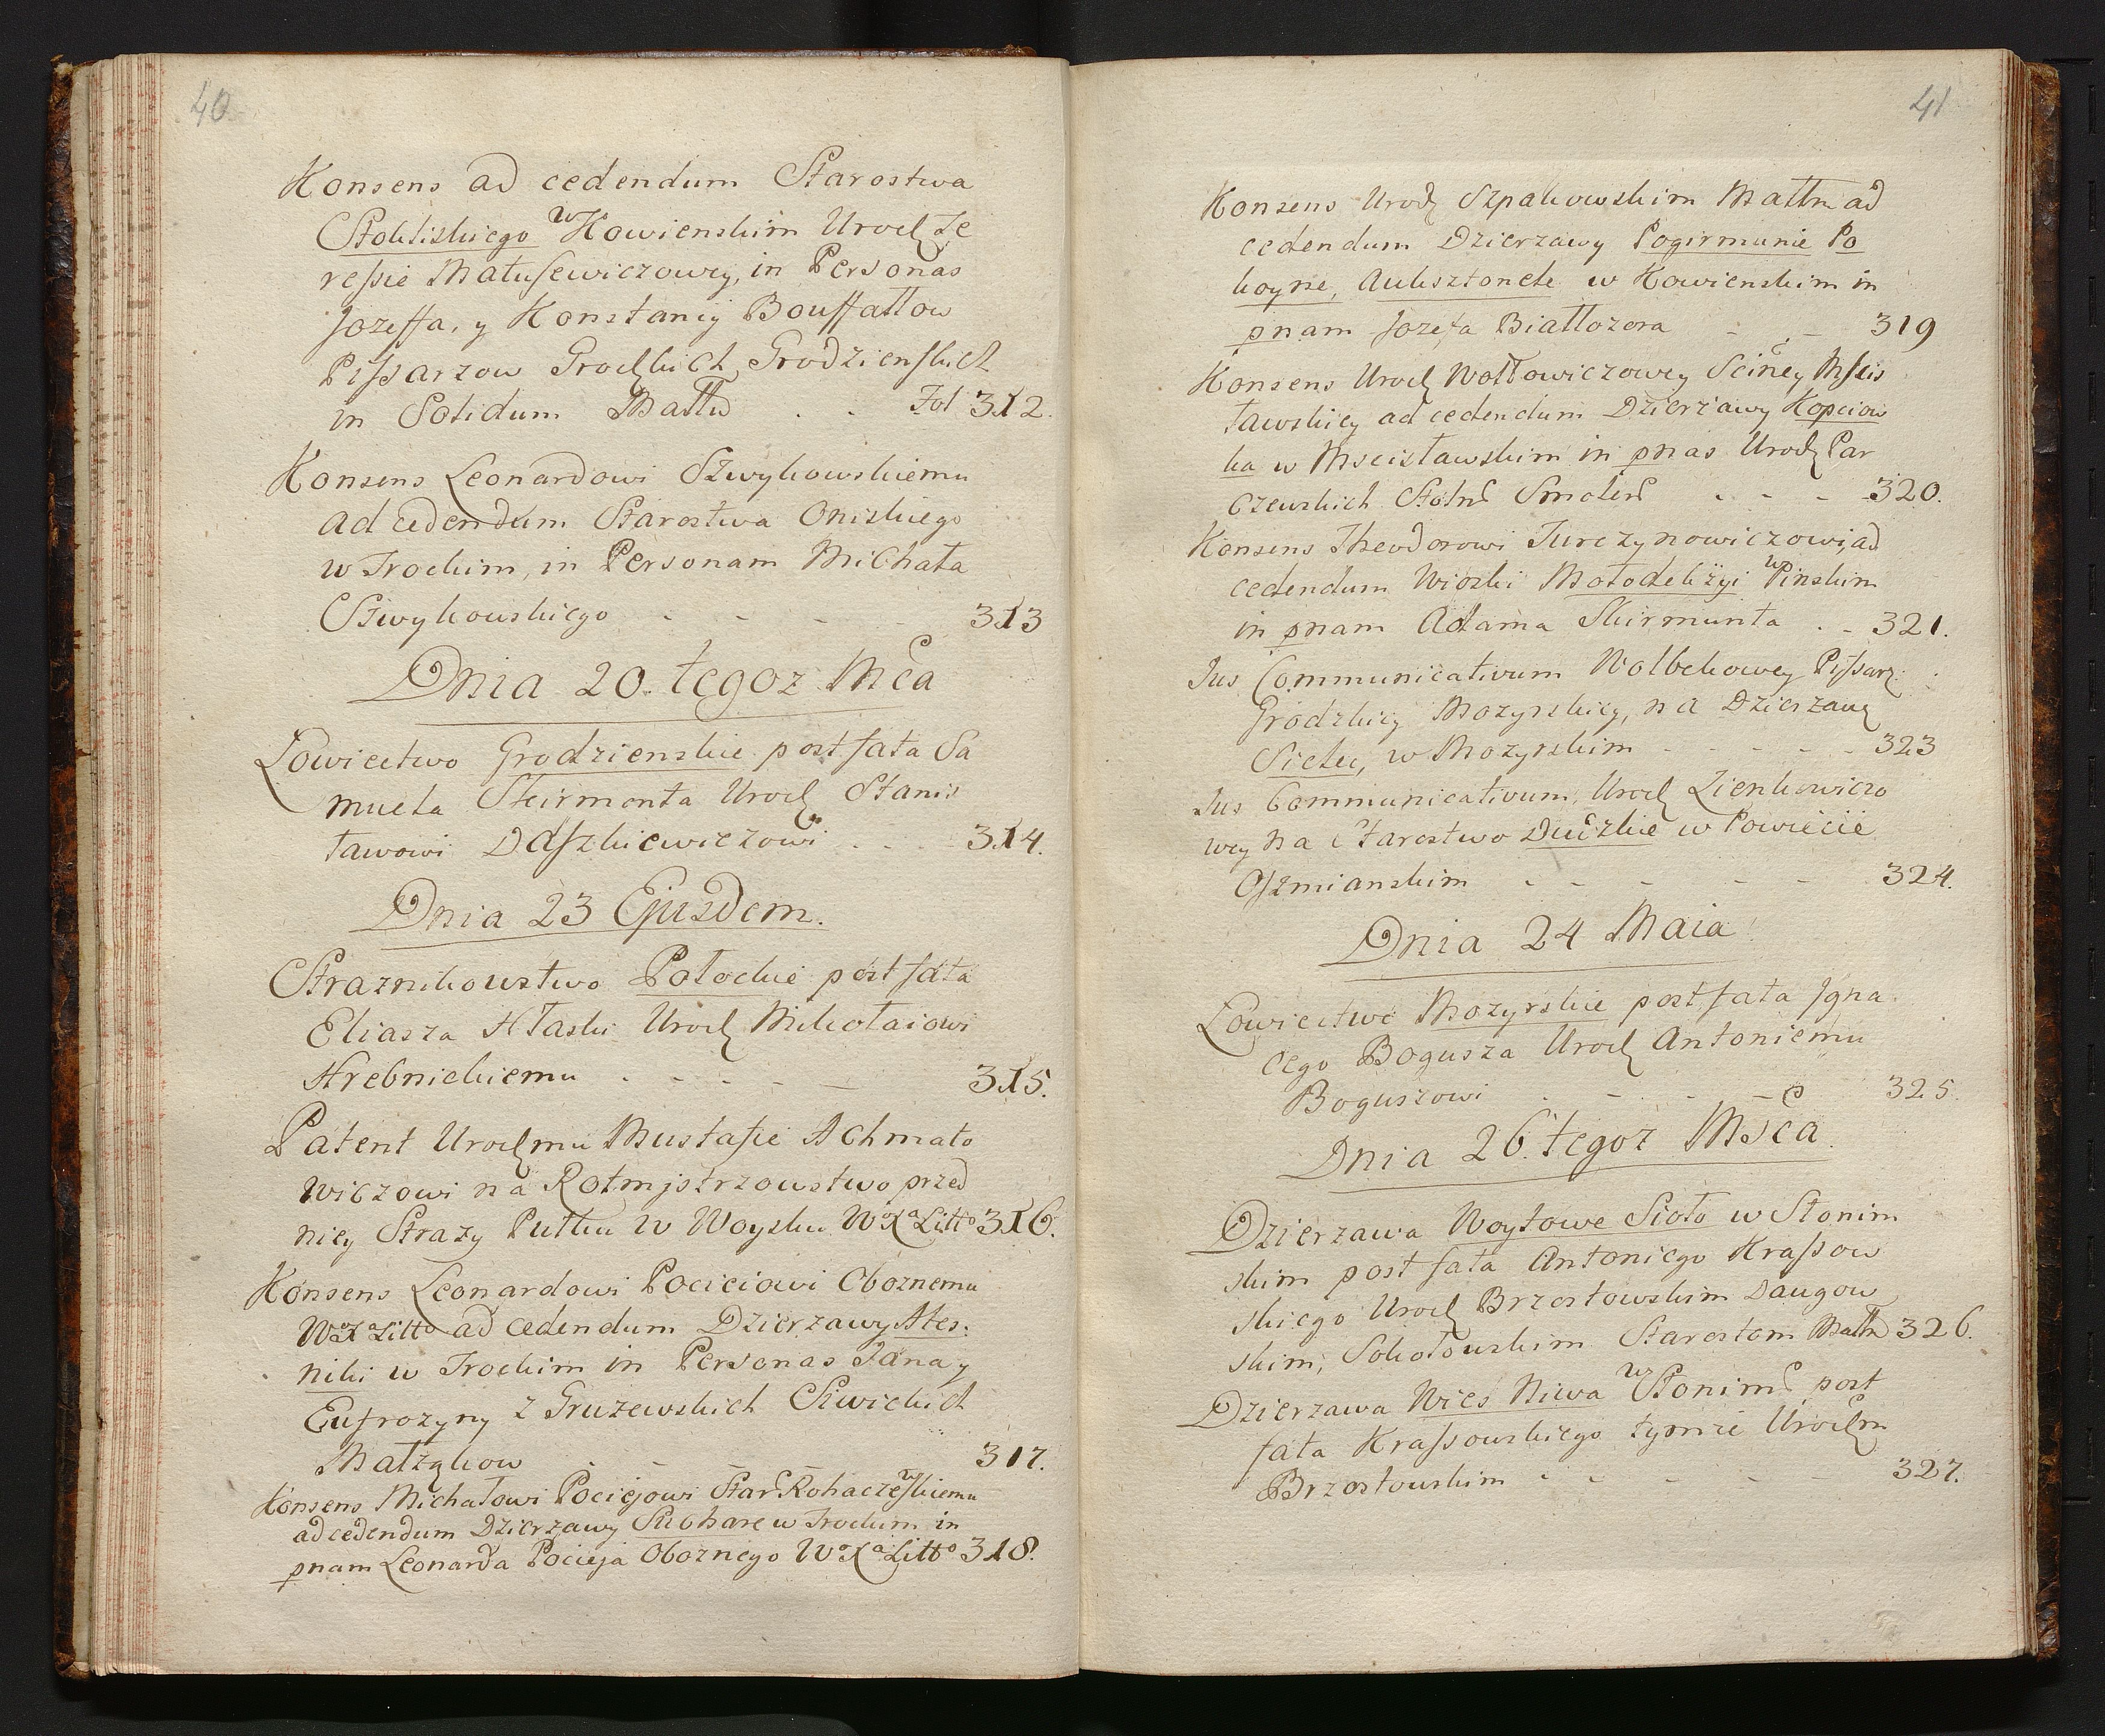 40
Konsens ad cedendum Starostwa
Stokliskiego w Kowienskim Urodz Te
ressie Matusewiczowey, in Personas
Jozeffa, y Konstancij Bouffałłow
Pissarzow Grodzkich Grodzienskich
in Solidum Małłu . . Fol 312.
Konsens Leonardowi Szwykowskiemu
ad cedendum Starostwa Oniskiego
w Trockim, in Personam Michała
Szwykowskiego - - - - 313
Dnia 20. tegoz Mca
Łowiectwo Grodzienskie post fata Sa
muela Skirmonta Urodz Stanis
ławowi Daszkiewiczowi . . . 314.
Dnia 23 Ejusdem.
Straznikowstwo Połockie post fata
Eliasza Hłaski Urodz Mikołaiowi
Hrebnickiemu . - - - - 315.
Patent Urodzmu Mustafie Achmato
wiczowi na Rotmistrzowstwo przed
niey Strazy Pułku w Woysku WoXa Litto 316.
Konsens Leonardowi Pocieiowi Oboznemu
WoXa Litto ad cedendum Dzierzawy Ales:
niki w Trockim in Personas Jana y
Eufrozyny z Gruzewskich Siwickich
Małząkow - - - - 317.
Konsens Michałowi Pociejowi Star Rohaczewskiemu
ad cedendum Dzierzawy Suchare w Trockim in
pnam Leonarda Pocieja Oboznego WoXa Litto 318.
41
Konsens Urodz Szpakowskim Małłm ad
cedendum Dzierzawy Pogirmunie Po
koynie, Auksztoncle w Kowienskim in
pnam Jozefa Białłozora - - - 319
Konsens Urodz Wołłowiczowey Sciney Mscis
ławskiey ad cedendum Dzierzawy Kopciow
ka w Mscisławskim in pnas Urodz Par
czewskich Stoln Smolen . - - - 320.
Konsens Theodorowi Turczynowiczowi, ad
cedendum Wioski Mołodelżyi w Pinskim
in pnam Adama Skirmunta . - 321.
Jus Communicativum Wolbekowey Pissarz:
Grodzkiey Mozyrskiey, na Dzierzawę
Sielec, w Mozyrskim - - - - - 323
Jus Communicativum, Urodz Zienkowiczo
wey na Starostwo Dudzkie w Powiecie
Oszmianskim - - - - - 324.
Dnia 24 Maia
Łowiectwo Mozyrskie post fata Igna
cego Bogusza Urodz Antoniemu
Boguszowi . - . - - 325.
Dnia 26. tegoz Msca
Dzierzawa Woytowe Sioło w Słonim
skim post fata Antoniego Krassow
skiego Urodz Brzostowskim Daugow
skim, Sokołowskim Starostom Małłm 326.
Dzierzawa Wies Niwa w Słonim post
fata Krassowskiego tymze Urodzm
Brzostowskim - - - - - - 327.